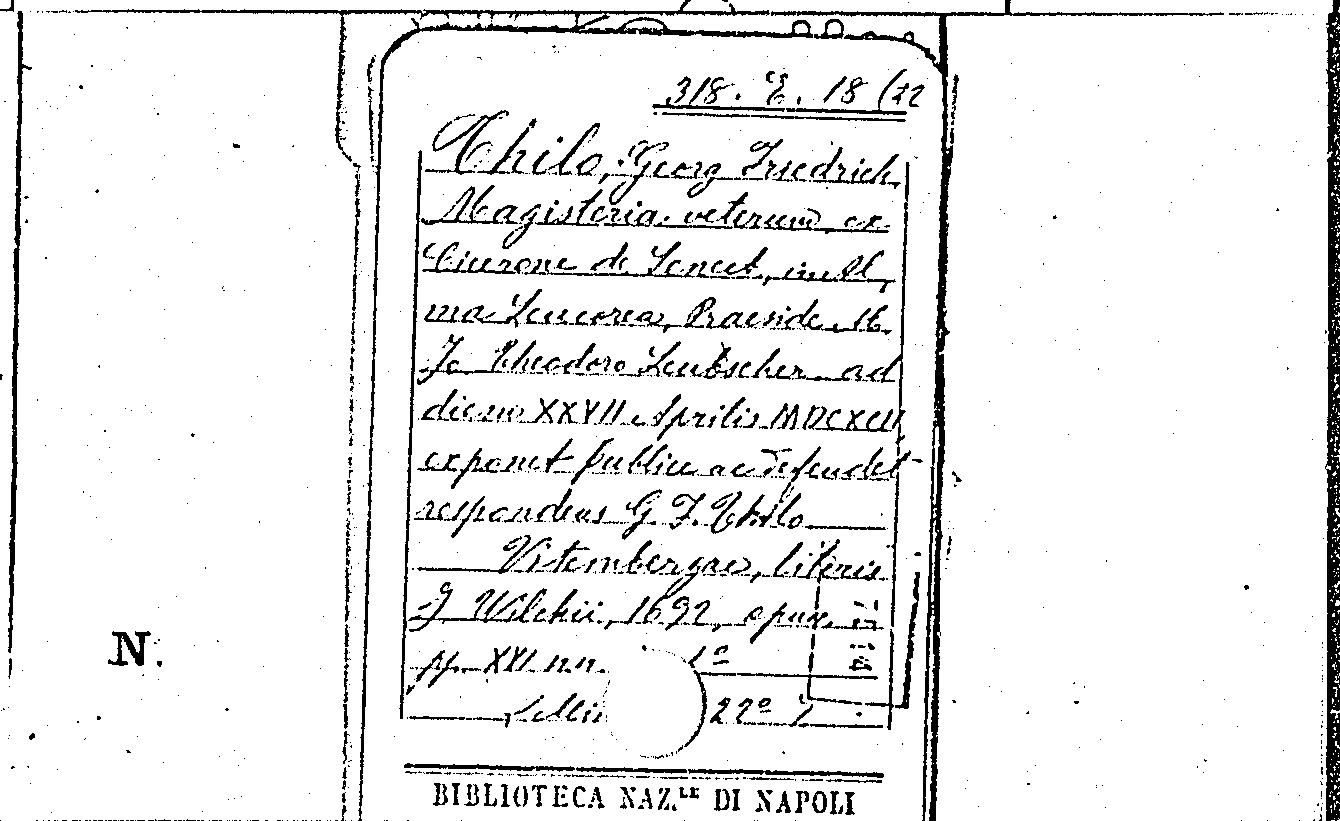 318. E. 18 (22
Thilo, Georg Friedrich
Magisteria veterum ex
Cicerone de Senect, in Al,
ma Leucorea, Praeside M.
Jo Theodoro Leubscher ad
diem XXVII Aprilis MDCXCII
exponet publice ac defendet
respondens G. F. Thilo
Vitembergae, literis
J Wilckii, 1692,
pp. XVI nn. 1º
22º
N.
BIBLIOTECA NAZ.LE DI NAPOLI